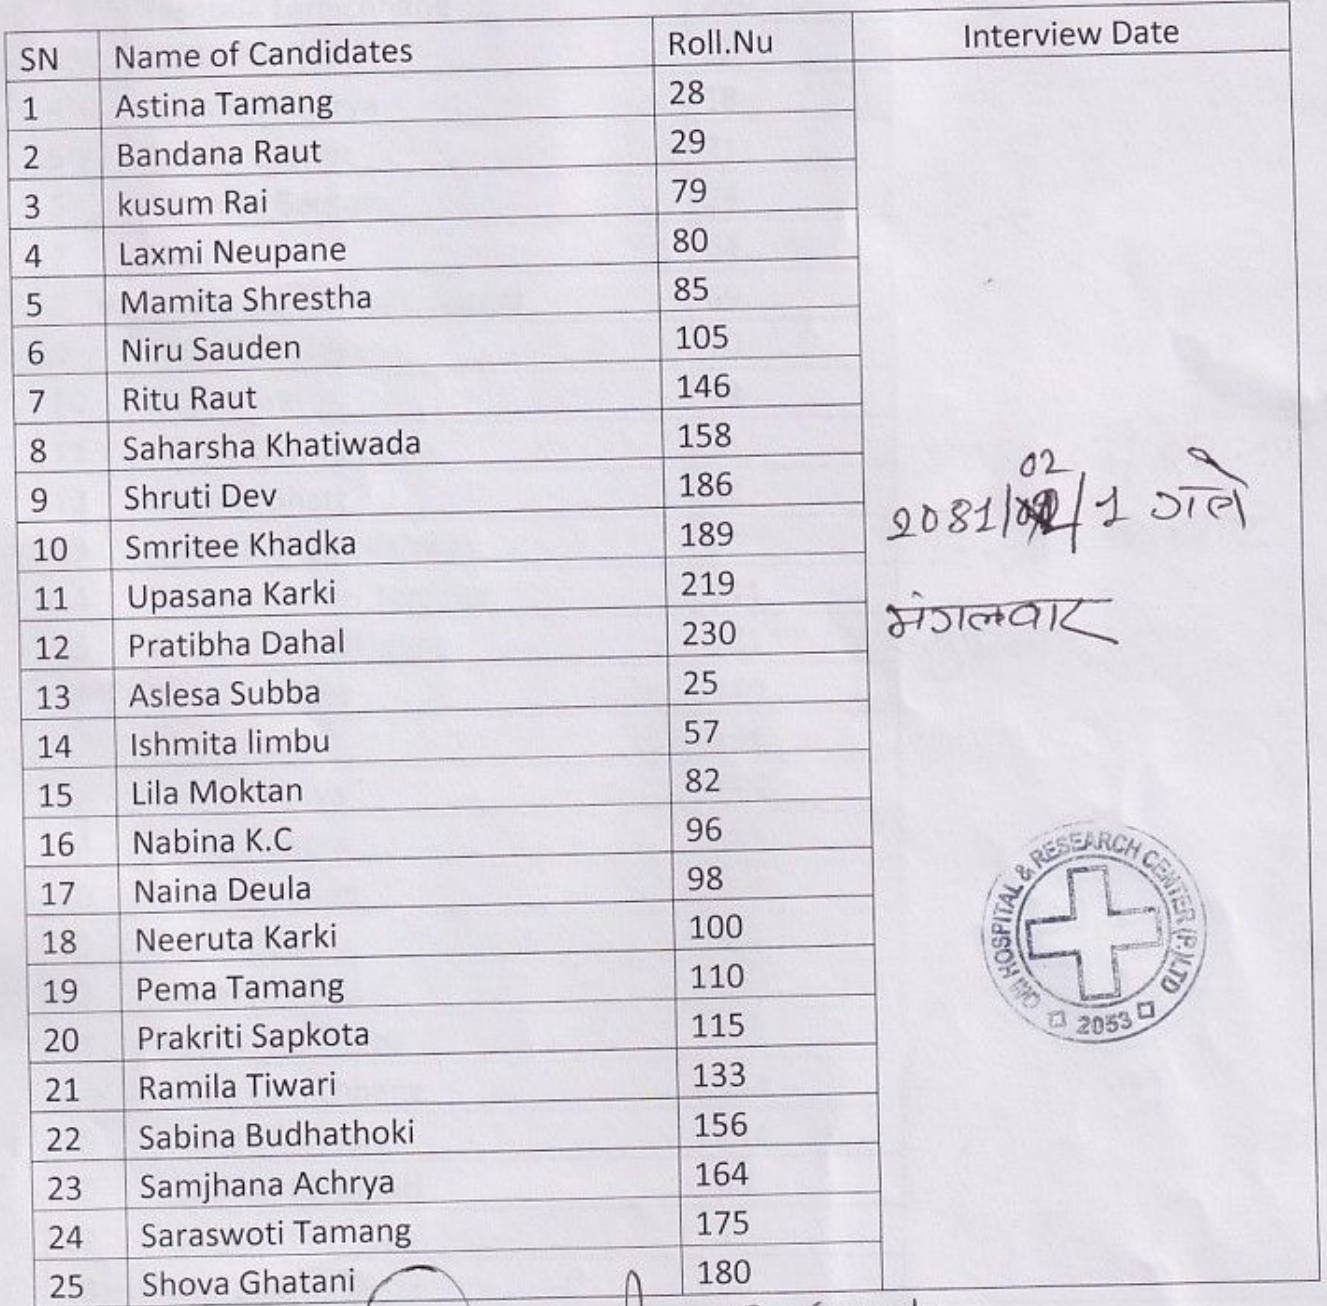 SN Name of Candidates Roll.Nu Interview Date
1 Astina Tamang 28
2 Bandana Raut 29
3 kusum Rai 79
4 Laxmi Neupane 80
5 Mamita Shrestha 85
6 Niru Sauden 105
7 Ritu Raut 146
8 Saharsha Khatiwada 158
9 Shruti Dev 186
10 Smritee Khadka 189
11 Upasana Karki 219
12 Pratibha Dahal 230
13 Aslesa Subba 25
14 Ishmita limbu 57
15 Lila Moktan 82
16 Nabina K.C 96
17 Naina Deula 98
18 Neeruta Karki 100
19 Pema Tamang 110
20 Prakriti Sapkota 115
21 Ramila Tiwari 133
22 Sabina Budhathoki 156
23 Samjhana Achrya 164
24 Saraswoti Tamang 175
25 Shova Ghatani 180
02
2081/ /1 गते
मंगलवार
OM HOSPITAL & RESEARCH CENTER (P.) LTD
2053